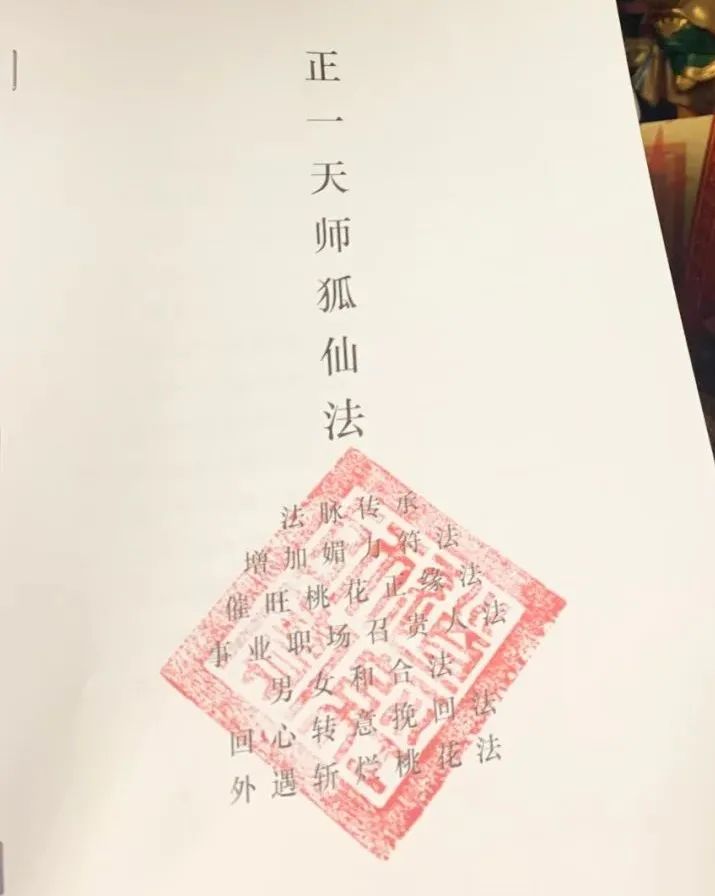 正一天师狐仙法
法脉传承
增加媚力符法
催旺桃花正缘法
事业职场召贵人法
男女和合法
回心转意挽回法
外遇斩烂桃花法